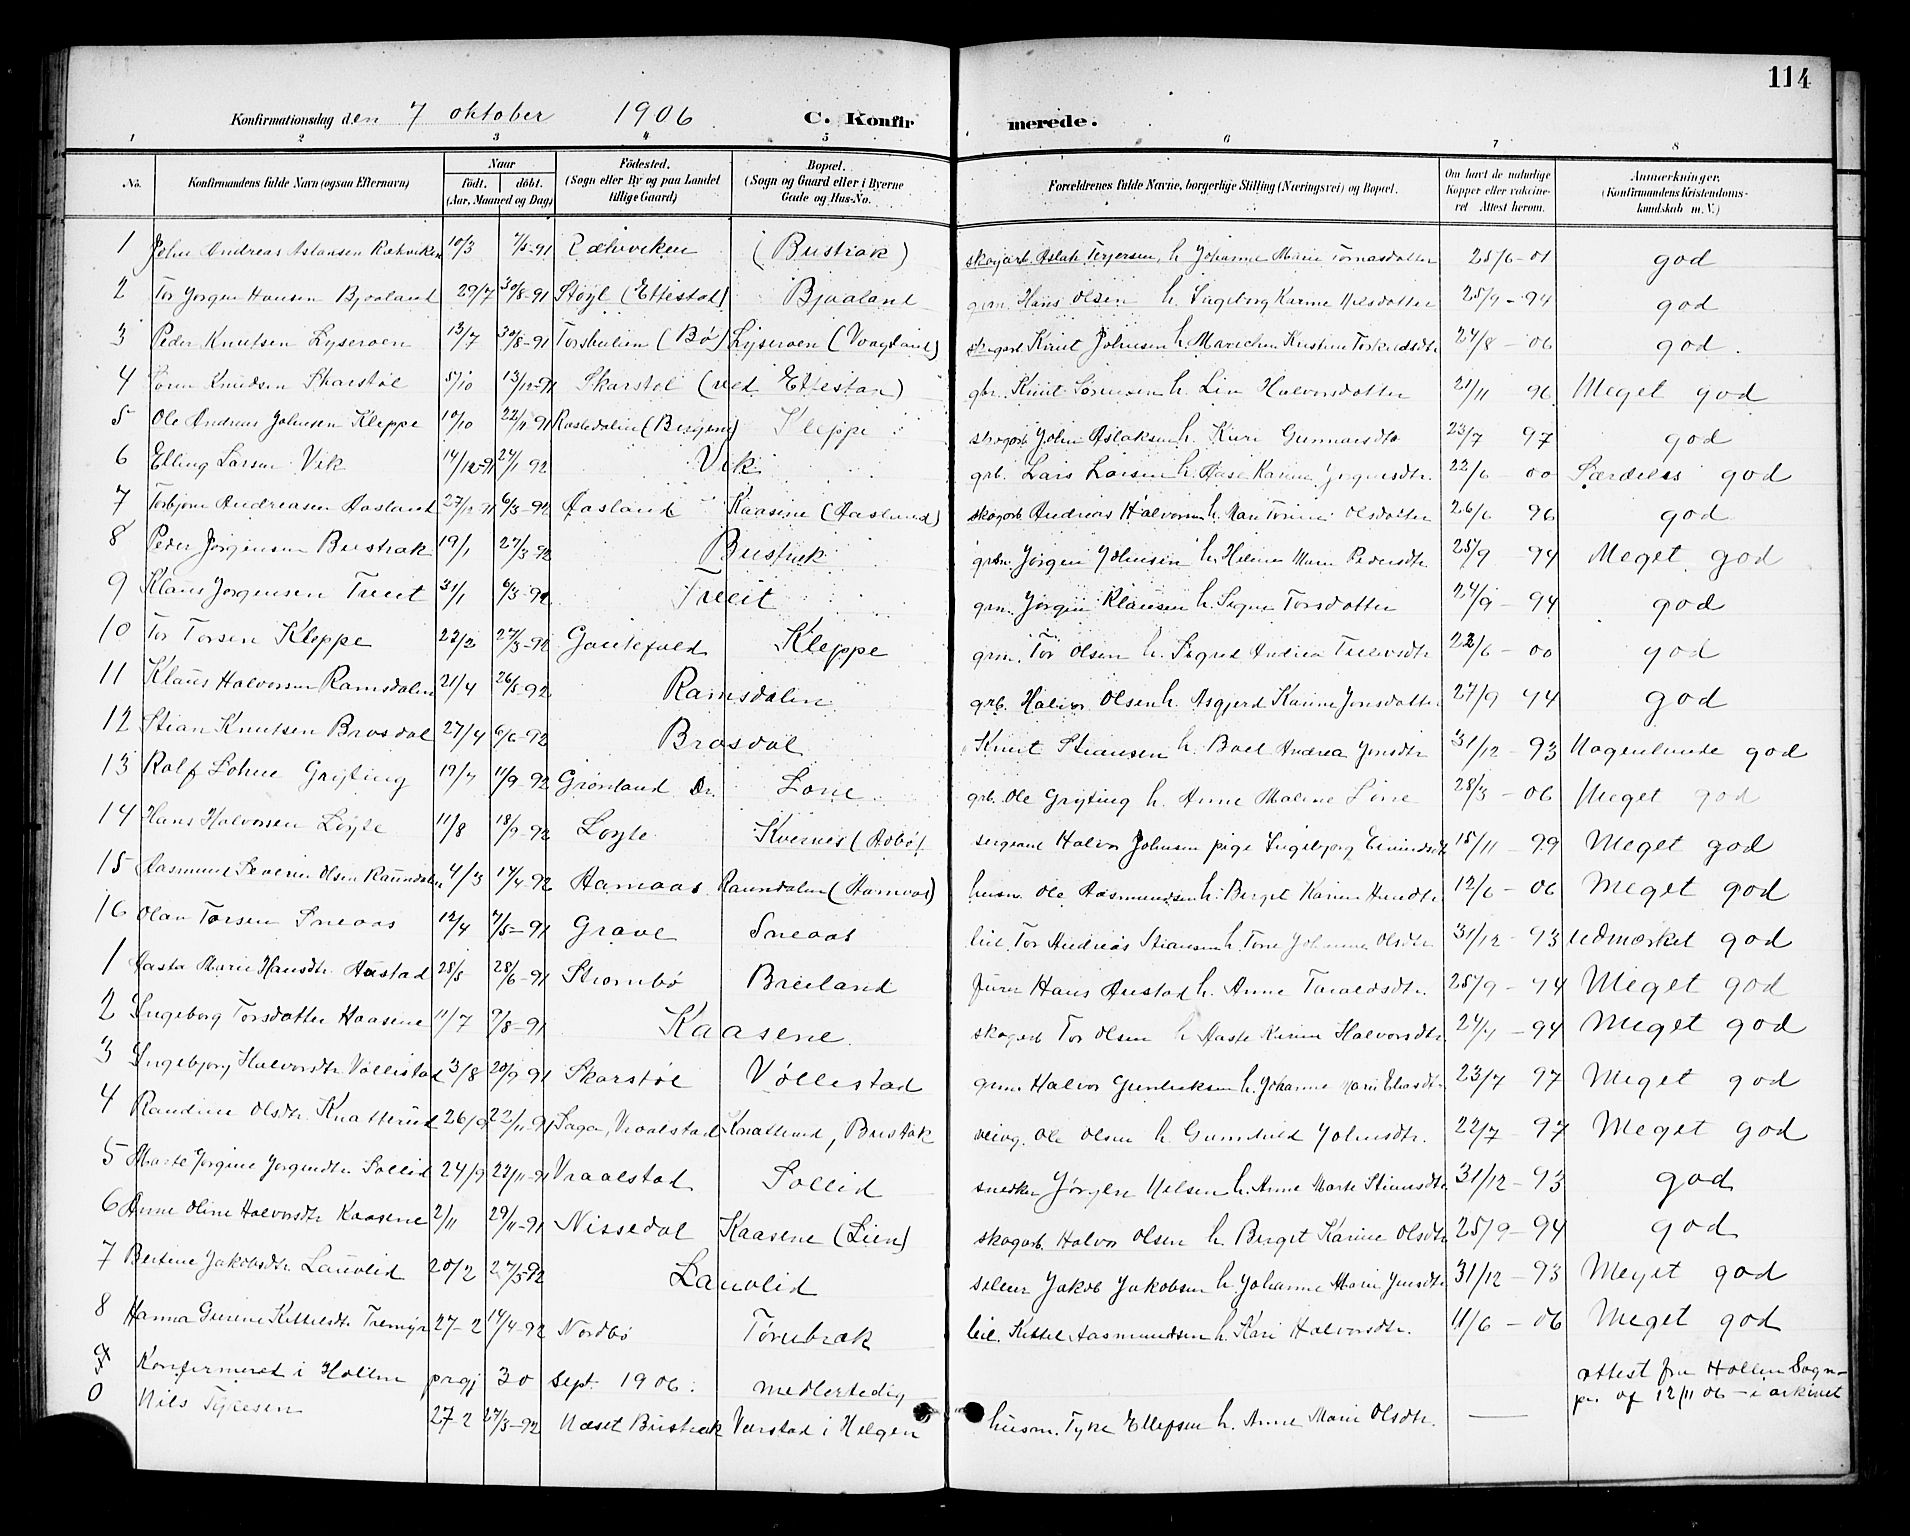 114
Konfirmationsdag den 7 oktober 1906 C. Konfirmerede.
1 2 3 4 5 6 7 8
No. Konfirmandens fulde Navn (ogsaa Efternavn) Naar født. døbt. (Aar, Maaned og Dag) Fødested. (Sogn eller By og paa Landet tillige Gaard) Bopæl. (Sogn og Gaard eller i Byerne Gade og Hus-No. Forældrenes fulde Navne, borgerlige Stilling (Næringsvei) og Bopæl. Om havt de naturlige Kopper eller vaccineret Attest herom. Anmærkninger. (Konfirmandens Kristendomskundskab m. V.)
1 John Andreas Aslaksen 10/3 7/5-91 (Bustrak) skogarb. Aslak Terjersen, h. Johanne Marie Tomasdatter 25/6-01 god
2 Tor Jørgen Hansen Bjaaland 29/7 30/8-91 Støyl (Ettestøl) Bjaaland grm. Hans Olsen h. Ingeborg Karine Nilsdatter 25/9-94 god
3 Peder Knutsen Lyseroen 13/7 30/8-91 (Bø) Lyseroen skogarb Knut Johnsen h. Kristine 24/8-06 god.
4 Knudsen Skarstøl 5/10 13/12-91 Skarstøl (ved Ettestøl) gbr. Knut Sørensen h. Liv Halvorsdatter 21/11 96 Meget god
5 Ole Andreas Johnsen Kleppe 10/10 22/11 91 Kleppe skogarb John Aslaksen h. Kari Gunnarsdtr 23/7 97 god
6 Elling Larsen Vik 14/12-91 24/1 92 Vik grb. Lars Larsen h. Aase Karine Jørgensdtr. 22/6-00 Særdeles god
7 Torbjørn Andreasen Aasland 27/12-91 6/3-92 Aasland Kaasene (Aasland) skogarb Andreas Halvorsen h. Olsdatter 26/6 96 god
8 Peder Jørgensen Bustrak 19/1 27/3-92 Bustrak grbr. Jørgen Johnsen h. Marie Pedersdtr. 25/9 94 Meget god
9 Klaus Jørgensen Treit 31/1 6/3-92 Treit grm. Jørgen Klausen h. Signe Torsdatter 24/9-94 god
10 Tor Torsen Kleppe 22/2 27/3-92 Gautefald Kleppe grm. Tor Olsen h. Sigrid Andrea 22/6-00 god
11 Klaus Halvorsen Ramsdalen 21/4 26/5-92 Ramsdalen grb. Halvor Olsen h. Asgjerd Karine Jonsdatter 27/9 94 god
12 Stian Knutsen Brosdal 27/4 6/6-92 Brosdal Knut Stiansen h. Boel Andrea Jensdtr 31/12-93 Nogenlunde god
13 Rolf Lohne Gryting 19/7 11/9-92 Grønland Dr. Lone grb. Ole Gryting h. Anne Malene Lone 28/3-06 Meget god
14 Hans Halvorsen Løyte 11/8 18/9-92 Løyte Kvernes sergeant Halvor Johnsen pige Ingebjørg 15/11-99 Meget god
15 Aasmund Severin Olsen Raundalen 4/3 17/4-92 Aamaas Raundalen (Aamaas) husm. Ole Aasmundsen h. Berget Karine 12/6-06 Meget god
16 Olav Torsen Sneaas 12/4 7/5-91 Grave Sneaas leil. Tor Andreas Stiansen h. Tone Johanne Olsdtr 31/12-93 Udmærket god
1 Aasta Marie Hansdtr. Austad 25/5 28/6-91 Strømbø Breiland furer Hans Austad h. Anne Taraldsdtr. 25/9-94 Meget god
2 Ingeborg Torsdatter Kaasene 11/7 9/8-91 Kaasene skogarb Tor Olsen h. Aaste Karine Halvorsdtr. 24/9-94 Meget god
3 Ingebjørg Halvorsdtr. Vøllestad 3/8 20/9-91 Skarstøl Vøllestad grm. Halvor h. Johanne Marie 23/7 97 Meget god
4 Randine Olsdtr. Knatterud 26/9 22/11-91 Saga, Vraalstad Knatterud, Bustrak veivog. Ole Olsen h. Gunnhild Johnsdtr. 22/7-97 Meget god
5 Marte Jørgine Jørgensdtr. Sollid 24/9 22/11-91 Vraalstad Sollid snedker Jørgen Nilsen h. Anne Marte Stiansdtr 31/12-93 god
6 Anne Oline Halvorsdtr Kaasene 2/11 29/11-91 Nissedal Kaasene (Lien) skogarb. Halvor Olsen h. Berget Karine Olsdtr 25/9-94 god
7 Bertine Jakobsdtr. Lauvlid 20/2 27/5-92 Lauvlid Jakob Jakobsen h. Johanne Marie Jensdtr 31/12-93 Meget god
8 Hanna Kittelsdtr Tremyr 27-2 14/4-92 Nordbø Tørnbrak leil. Kittel Aasmundsen h. Kari Halvorsdtr. 11/6-06 Meget god
Konfirmeret i Hollen prgj 30 sept. 1906. medlertedig attest fra Hollen Sogn-
pr. af 12/11 06 - i arkivet
0 Nils Tykesen 27 2 27/3-92 Næset Bustrak Verstad i Helgen husm. Tyke Ellefsen h. Anne Marie Olsdtr. —